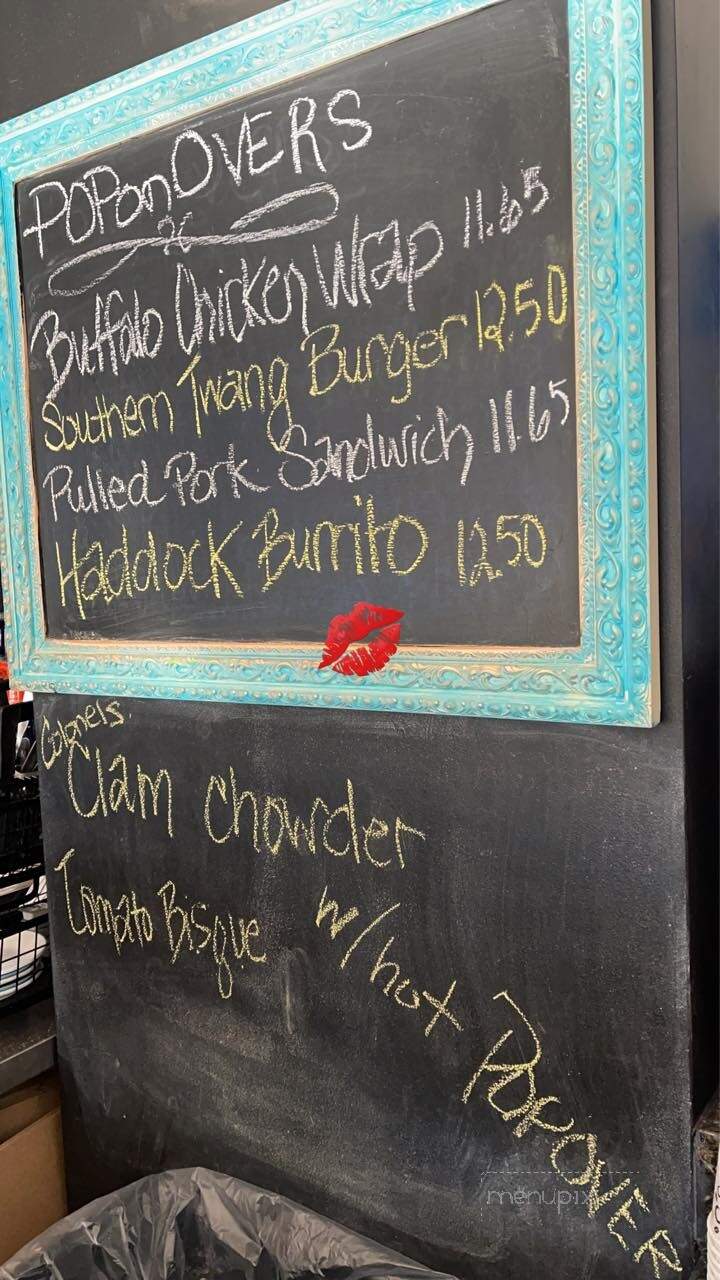 POPonOVERS
Buffalo Chicken Wrap 11.65
Southern Twang Burger 12.50
Pulled Pork Sandwich 11.65
Haddock Burrito 12.50
Colonels
Clam Chowder
Tomato Bisque
w/ hot POPOVER
menupix